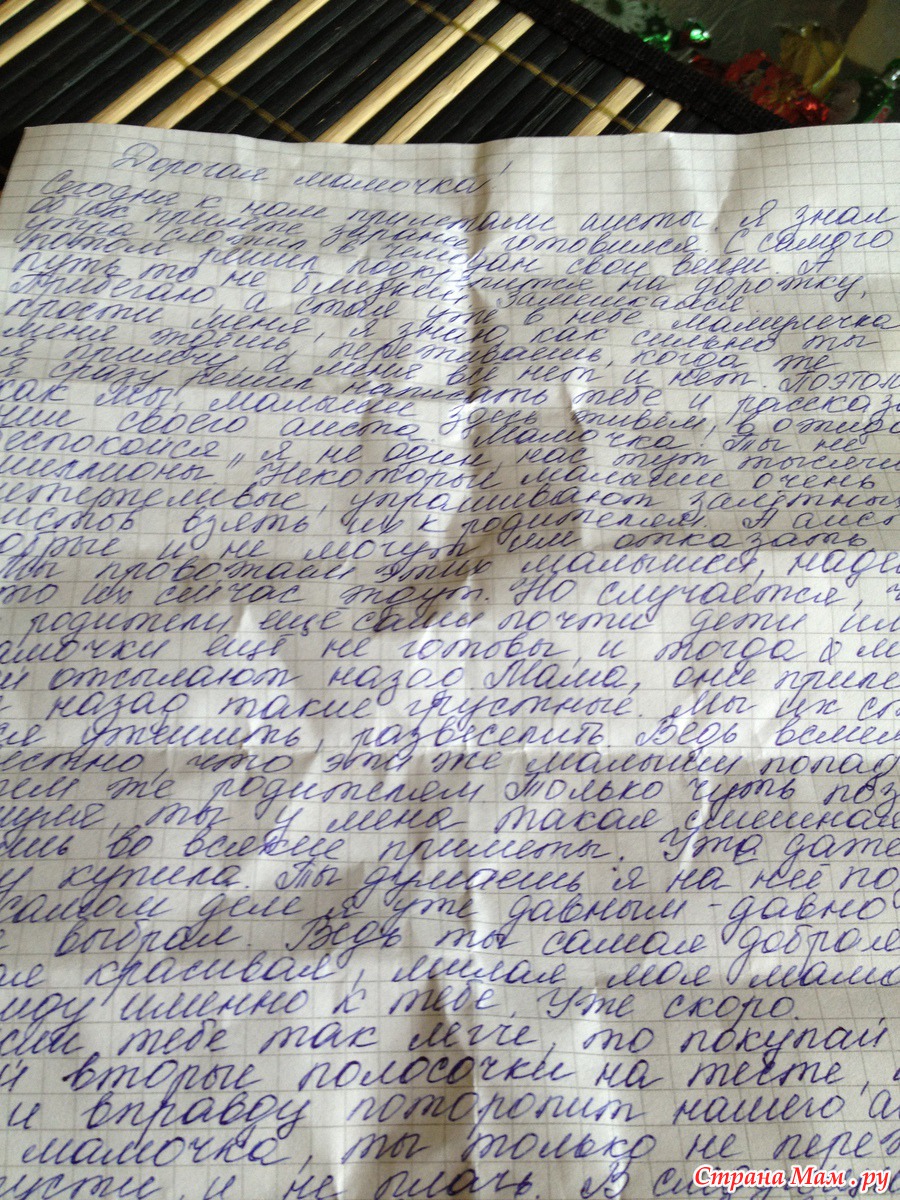 Дорогая мамочка!
Сегодня к нам прилетали аисты. Я знал
об их прилёте заранее, готовился. С самого
утра сложил в чемодан свои вещи. А
потом решил подкрепится на дорожку,
путь то не близкий. Замешкался
Прибегаю, а стая уже в небе. Мамулечка
прости меня, я знаю как сильно ты
меня ждёшь, переживаешь, когда же
я прилечу, а меня всё нет и нет. Поэтом
я сразу решил написать тебе и рассказа
как мы, малыши здесь живём, в ожида
нии своего аиста. Мамочка, ты не
еспокойся, я не один, нас тут тысячи
миллионы. Некоторые малыши очень
нетерпеливые, упрашивают залётных
истов взять их к родителям. А аист
обрые и не могут им отказать
Мы провожаем этих малышей, наде
то их сейчас ждут. Но случается, ч
родители ещё сами почти дети ил
амочки ещё не готовы, и тогда м
й отсылают назад. Мама, они приле
назад такие грустные. Мы их ст
ся утешить, развеселить. Ведь всем
естно, что эти же малыши попад
тем же родителям. Только чуть поз
муля, ты у меня такая смешная
ишь во всякие приметы. Уже даже
у купила. Ты думаешь я на неё по
самом деле я уже давным-давно
е выбрал. Ведь ты самая добрая
ая красивая, милая моя мамо
иду именно к тебе. Уже скоро.
сли тебе так легче, то покупай
й вторые полосочки на тесте,
и вправду поторопит нашего а
мамочка, ты только не пере
русти и не плачь. В сле
Страна Мам.ру